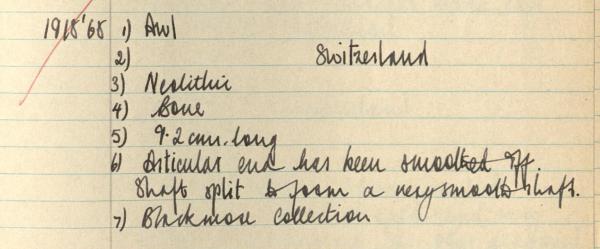 1918'68 1) Awl
2) Switzerland
3) Neolithic
4) Bone
5) 9.2 cms. long
6) Articular end has been smoothed off.
Shaft split to form a very smooth shaft.
7) Blackmore Collection